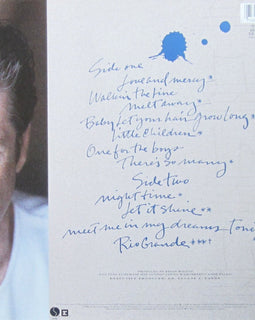 Side one
Love and mercy*
Walkin the line
Melt away*
Baby Let your hair grow long*
Little Children*
One for the boys
There's so many*
Side two
night time*
Let it shine**
meet me in my dreams Toni
Rio Grande***†
PRODUCED BY BRIAN WILSON